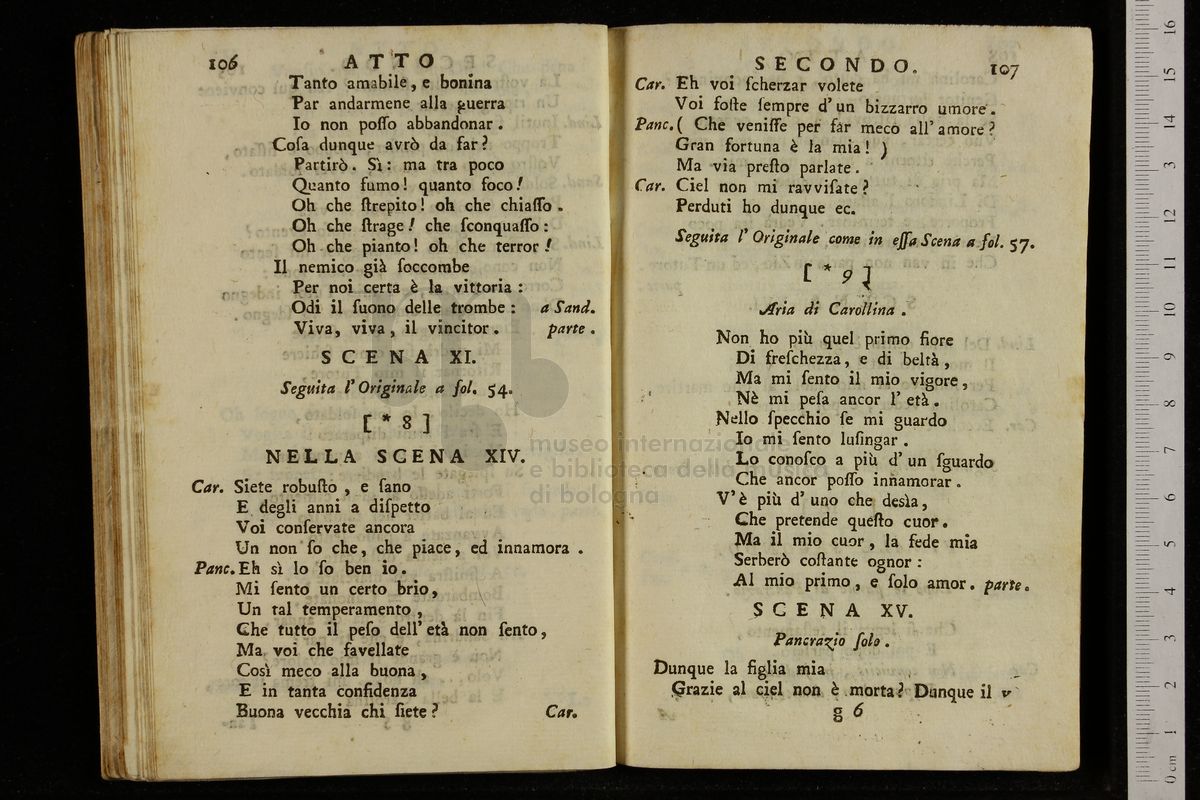 106 ATTO
Tanto amabile, e bonina
Par andarmene alla guerra
Io non poſſo abbandonar.
Coſa dunque avrò da far?
Partirò. Sì: ma tra poco
Quanto fumo! quanto foco!
Oh che ſtrepito! oh che chiaſſo.
Oh che ſtrage! che ſconquaſſo:
Oh che pianto! oh che terror!
Il nemico già ſoccombe
Per noi certa è la vittoria:
Odi il ſuono delle trombe: a Sand.
Viva, viva, il vincitor. parte.
SCENA XI.
Seguita l'Originale a fol. 54.
[*8]
NELLA SCENA XIV.
Car. Siete robuſto, e ſano
E degli anni a diſpetto
Voi conſervate ancora
Un non ſo che, che piace, ed innamora.
Panc. Eh sì lo ſo ben io.
Mi ſento un certo brio,
Un tal temperamento,
Che tutto il peſo dell'età non ſento,
Ma voi che favellate
Così meco alla buona,
E in tanta confidenza
Buona vecchia chi ſiete? Car.
SECONDO. 107
Car. Eh voi ſcherzar volete
Voi foſte ſempre d'un bizzarro umore.
Panc. ( Che veniſſe per far meco all'amore?
Gran fortuna è la mia! )
Ma via preſto parlate.
Car. Ciel non mi ravviſate?
Perduti ho dunque ec.
Seguita l'Originale come in eſſa Scena a fol. 57.
[*9]
Aria di Carollina.
Non ho più quel primo fiore
Di freſchezza, e di beltà,
Ma mi ſento il mio vigore,
Nè mi peſa ancor l'età.
Nello ſpecchio ſe mi guardo
Io mi ſento luſingar.
Lo conoſco a più d'un ſguardo
Che ancor poſſo innamorar.
V'è più d'uno che desìa,
Che pretende queſto cuor.
Ma il mio cuor, la fede mia
Serberò coſtante ognor:
Al mio primo, e ſolo amor. parte.
SCENA XV.
Pancrazio ſolo.
Dunque la figlia mia
Grazie al ciel non è morta? Dunque il v
g 6
museo internazionale
e biblioteca della musica
di bologna
0 cm 1 2 3 4 5 6 7 8 9 10 11 12 13 14 15 16